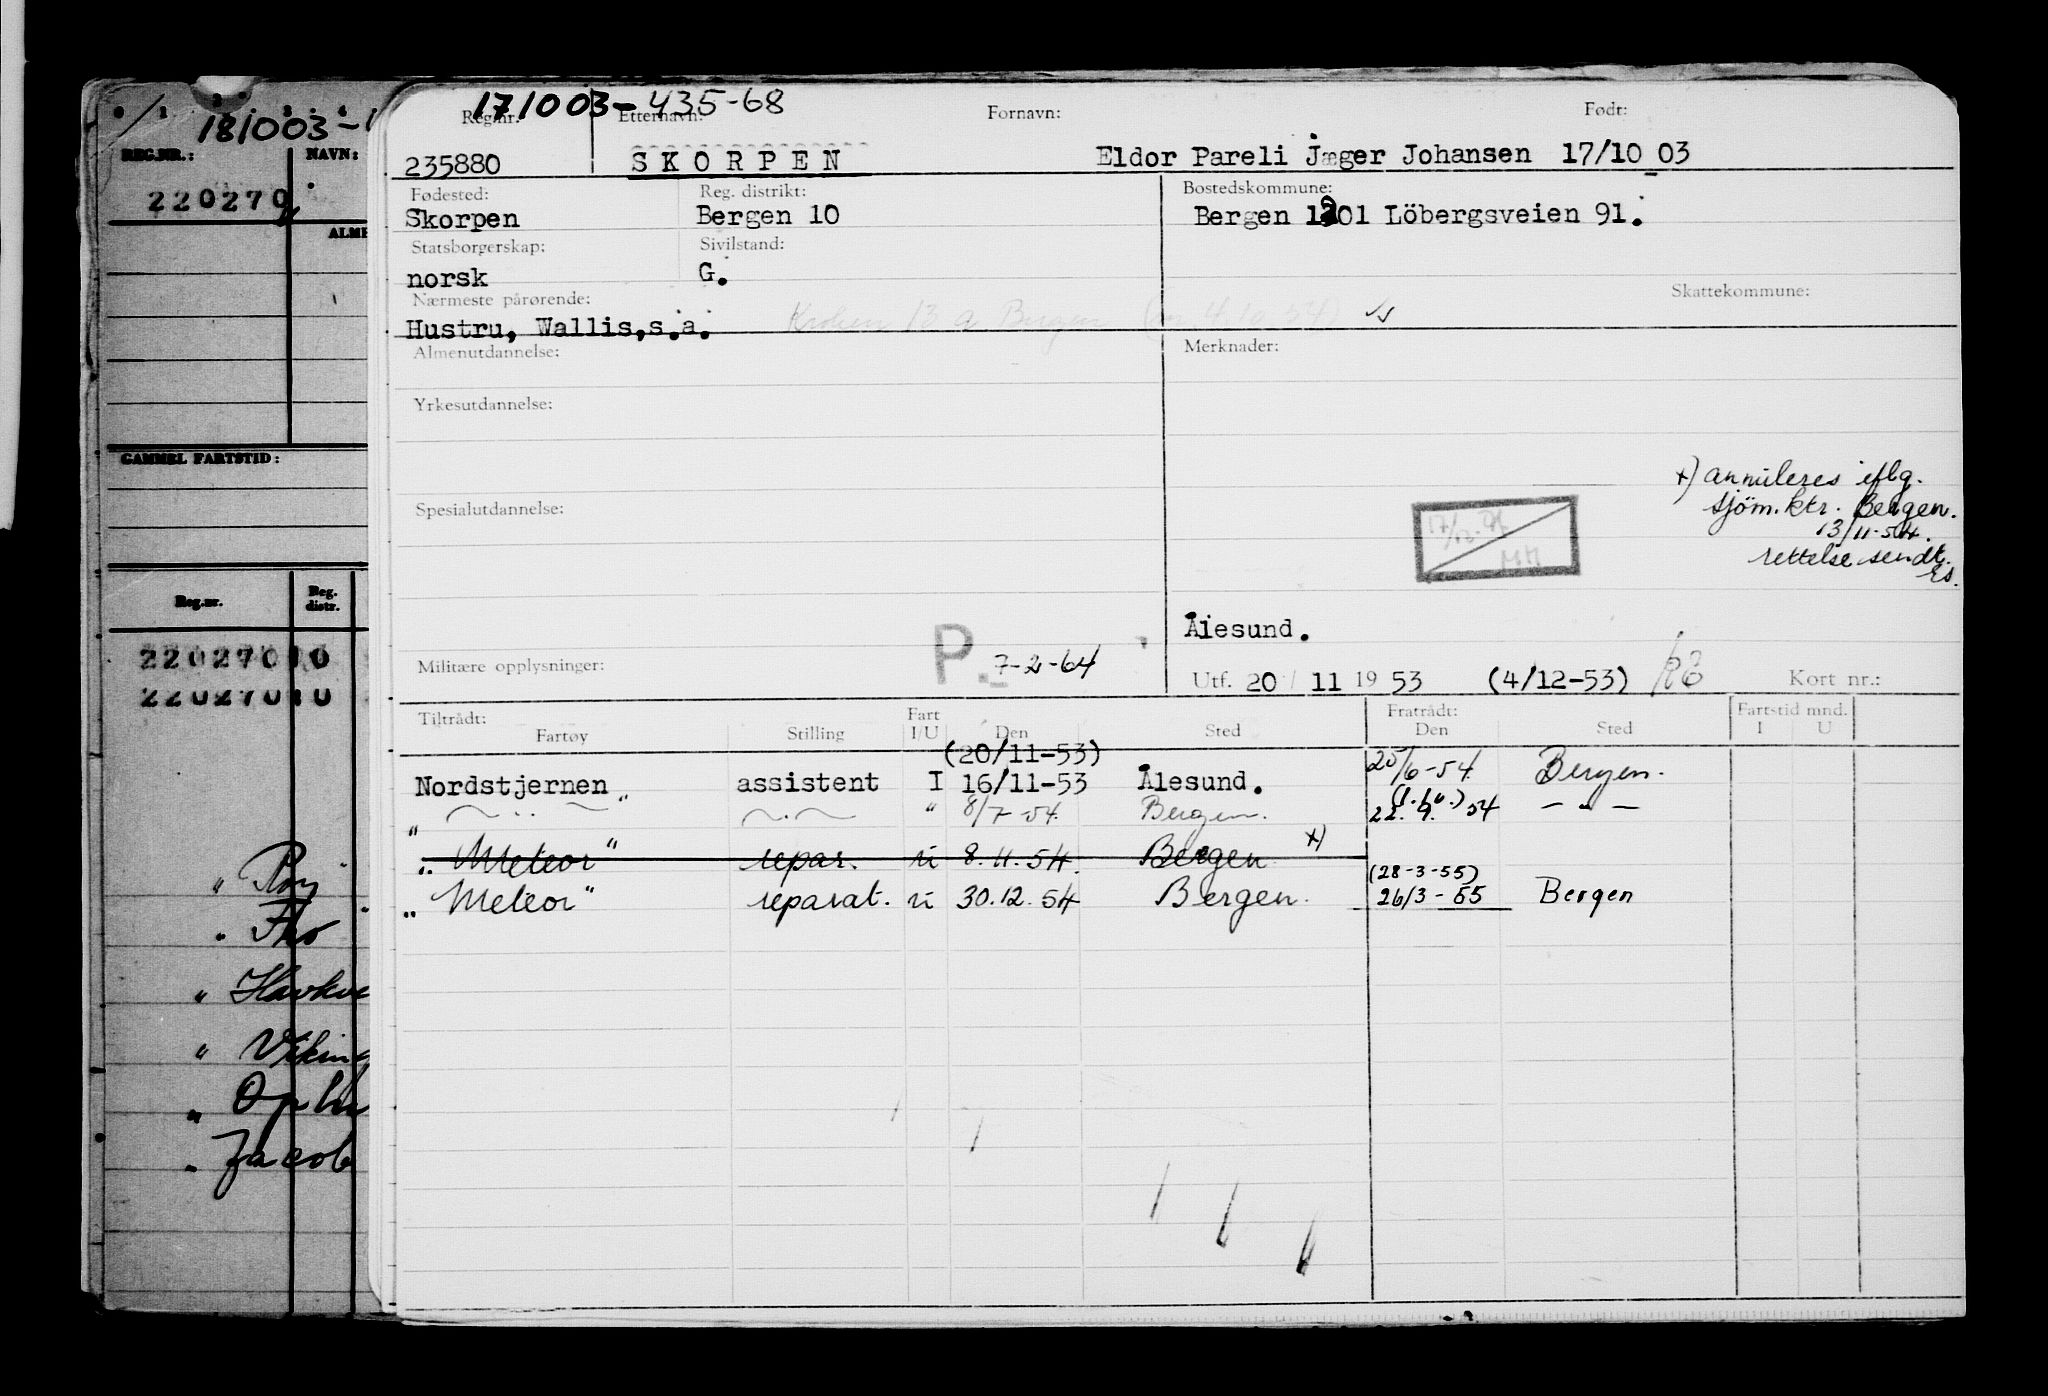 171003-435-68
Reg.nr. Etternavn: Fornavn: Født:
235880 SKORPEN Eldor Pareli Jæger Johansen 17/10 03
Fødested: Reg. distrikt: Bostedskommune:
Skorpen Bergen 10 Bergen 1301 Löbergsveien 91.
Statsborgerskap: Sivilstand:
norsk G.
Nærmeste pårørende: Skattekommune:
Hustru, Wallis,s.a. 13 a Bergen 4 10 54)
Almenutdannelse: Merknader:
Yrkesutdannelse:
x) annuleres iflg.
sjöm.ktr. Bergen.
13/11-54.
rettelse sendt.
Es.
Spesialutdannelse:
17/12-
MH
Ålesund.
Militære opplysninger: P. 7-2-64
Utf. 20 / 11 19 53 (4/12-53) Kort nr.:
Tiltrådt: Fart Fratrådt: Fartstid mnd.
Fartøy Stilling I/U Den Sted Den Sted I U
(20/11-53)
Nordstjernen assistent I 16/11-53 Ålesund. 25/6-54 Bergen.
" 8/7-54. Bergen. 22. 9. 54 — " —
"Meteor" repar. ü 8.11.54. Bergen x)
(28-3-55)
"Meteor" reparat. ü 30.12.54 Bergen. 26/3-55 Bergen
181003-1
REG.NR.: NAVN:
220270
ALME
GAMMEL FARTSTID:
Reg.nr. Reg. distr.
220270 10
220270 10
" Roy
" Tho
" Havkve
" Viking
" Ophi
" Jacob